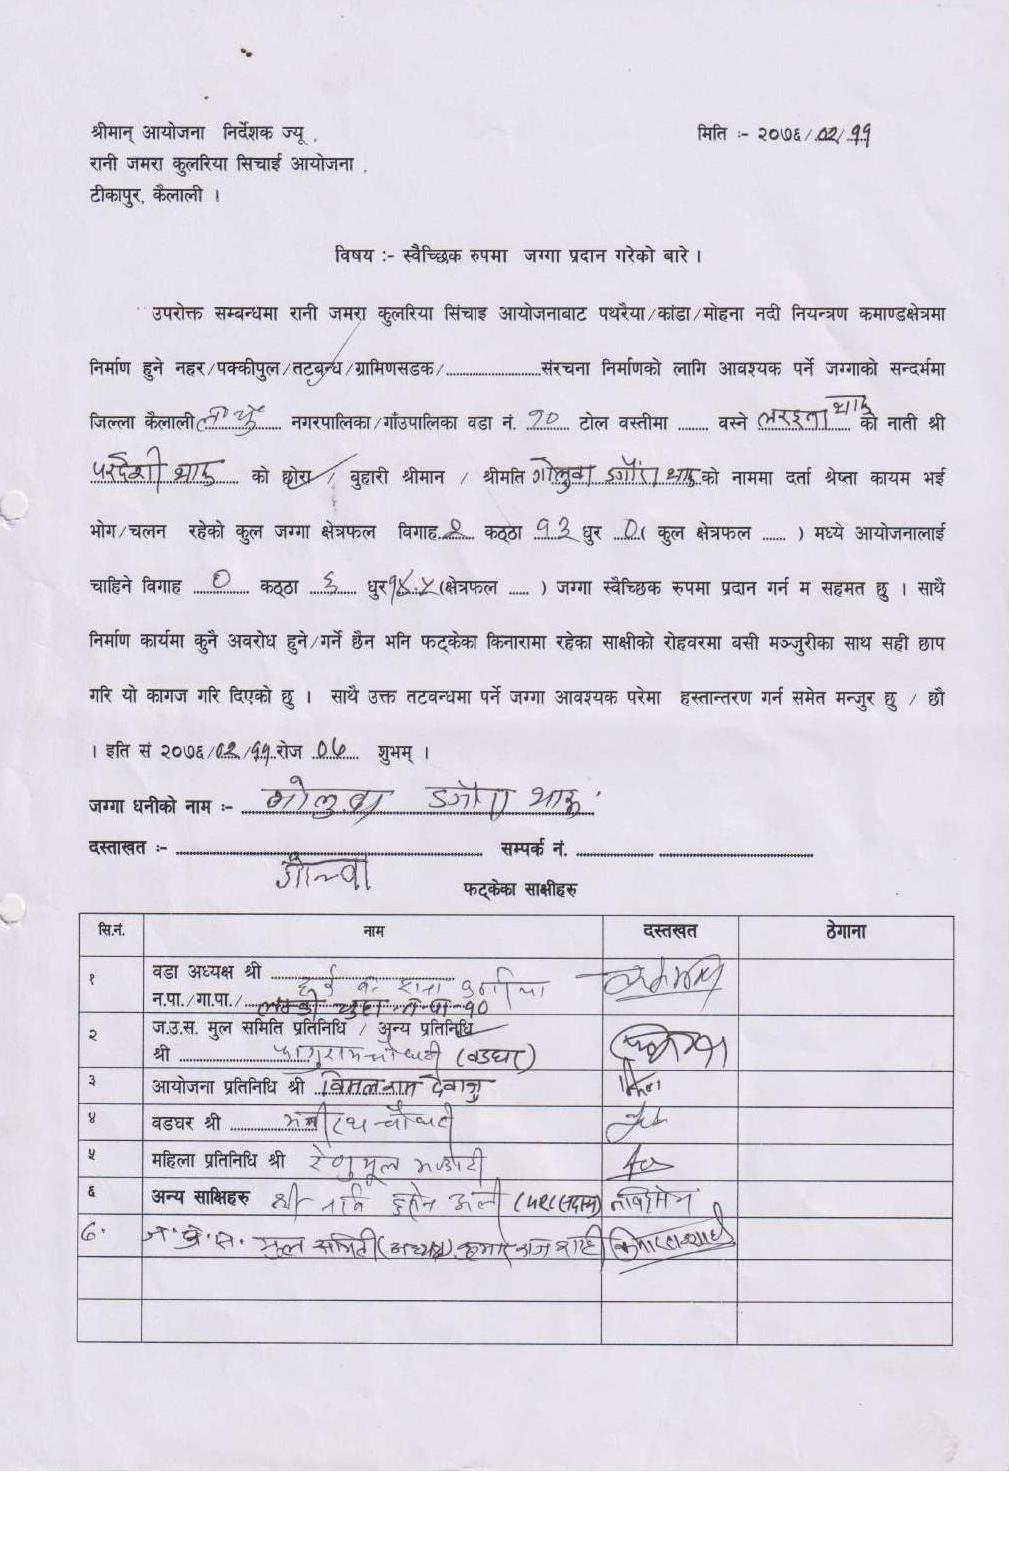 श्रीमान् आयोजना निर्देशक ज्यू , मिति :- २०७६/०२/११
रानी जमरा कुलरिया सिचाई आयोजना ,
टीकापुर, कैलाली ।
विषय :- स्वैच्छिक रुपमा जग्गा प्रदान गरेको बारे ।
उपरोक्त सम्बन्धमा रानी जमरा कुलरिया सिंचाइ आयोजनाबाट पथरैया/कांडा/मोहना नदी नियन्त्रण कमाण्डक्षेत्रमा
निर्माण हुने नहर/पक्कीपुल/तटबन्ध/ग्रामिणसडक/........................संरचना निर्माणको लागि आवश्यक पर्ने जग्गाको सन्दर्भमा
जिल्ला कैलाली नगरपालिका/गाँउपालिका वडा नं. १० टोल वस्तीमा ........ वस्ने को नाती श्री
परदेशी थारु को छोरा / बुहारी श्रीमान / श्रीमति गोलुवा डगौरा थारु को नाममा दर्ता श्रेष्ता कायम भई
भोग/चलन रहेको कुल जग्गा क्षेत्रफल विगाह कठ्ठा १३ धुर ०( कुल क्षेत्रफल ...... ) मध्ये आयोजनालाई
चाहिने विगाह ० कठ्ठा ६ धुर (क्षेत्रफल ...... ) जग्गा स्वैच्छिक रुपमा प्रदान गर्न म सहमत छु । साथै
निर्माण कार्यमा कुनै अवरोध हुने/गर्ने छैन भनि फट्केका किनारामा रहेका साक्षीको रोहवरमा वसी मञ्जुरीका साथ सही छाप
गरि यो कागज गरि दिएको छु । साथै उक्त तटवन्धमा पर्ने जग्गा आवश्यक परेमा हस्तान्तरण गर्न समेत मन्जुर छु / छौ
। इति सं २०७६/०२/११ रोज शुभम् ।
जग्गा धनीको नाम :- गोलुवा डगौरा थारु
दस्ताखत :- .................... सम्पर्क नं. ....................
फट्केका साक्षीहरु
सि.नं. नाम दस्तखत ठेगाना
१ वडा अध्यक्ष श्री
न.पा./गा.पा./ लम्की चुहा न पा १०
२ ज.उ.स. मुल समिति प्रतिनिधि / अन्य प्रतिनिधि
श्री फागुराम चौधरी (वडघर)
३ आयोजना प्रतिनिधि श्री
४ वडघर श्री चौधरी
५ महिला प्रतिनिधि श्री
६ अन्य साक्षिहरु श्री
७. मुल समिती (अध्यक्ष)